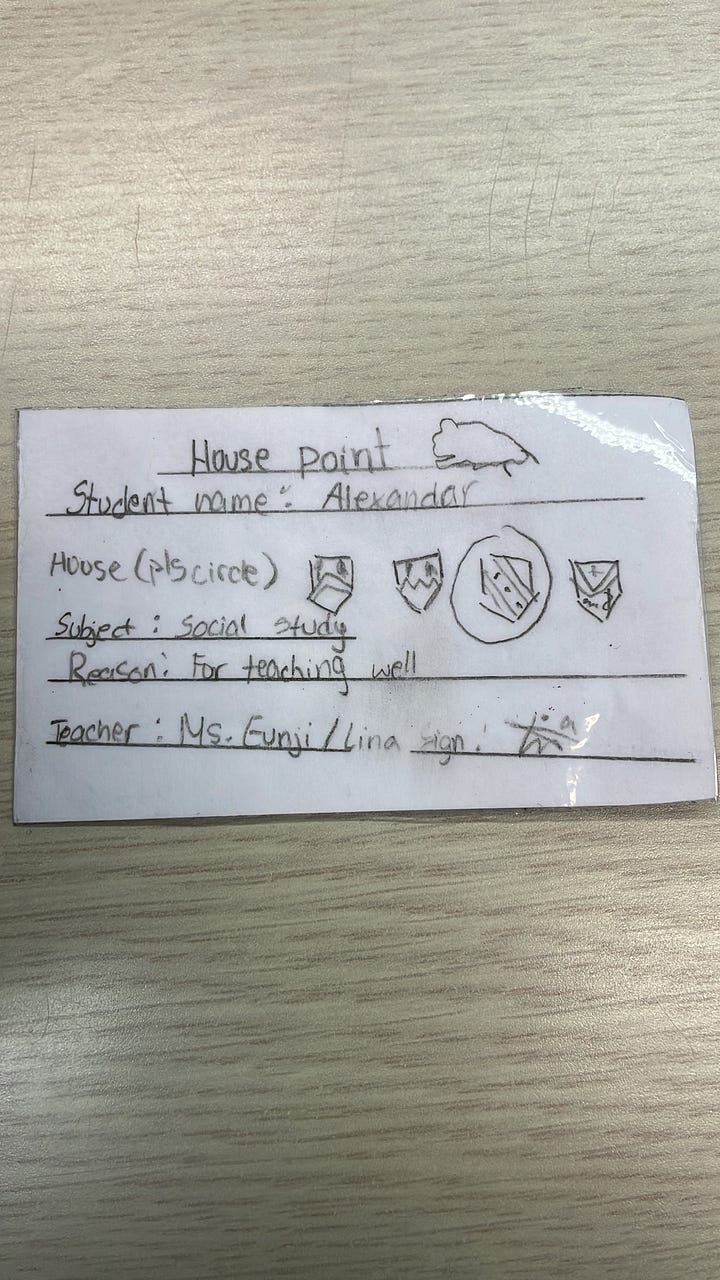 House point
Student name: Alexandar
House (pls circle)
Subject: Social study
Reason: For teaching well
Teacher: Ms. Eunji / Lina sign: